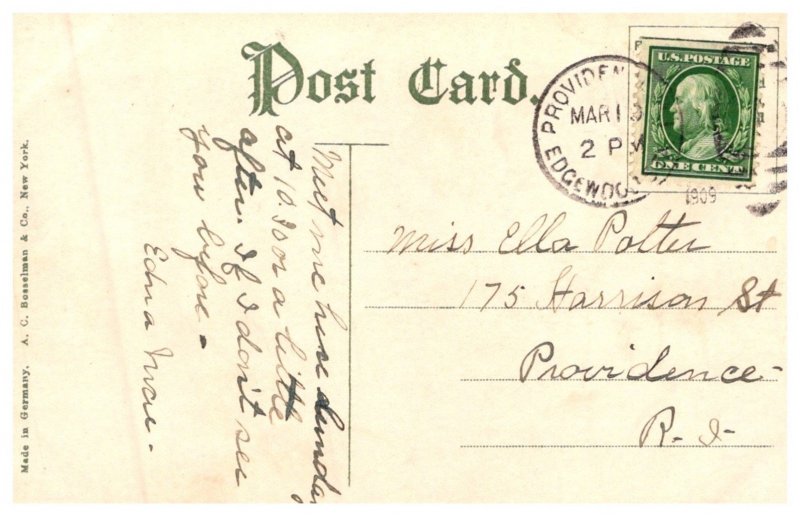 Post Card.
PROVIDEN
MAR 1
2 PM
EDGEWOOD
U.S. POSTAGE
ONE CENT
1909
Meet me here Sunday
at 10.30 or a little
after. If I don't see
you before -
Edna Mae -
Miss Ella Potter
175 Harrison St
Providence -
R. I -
Made in Germany. A. C. Bosselman & Co., New York.